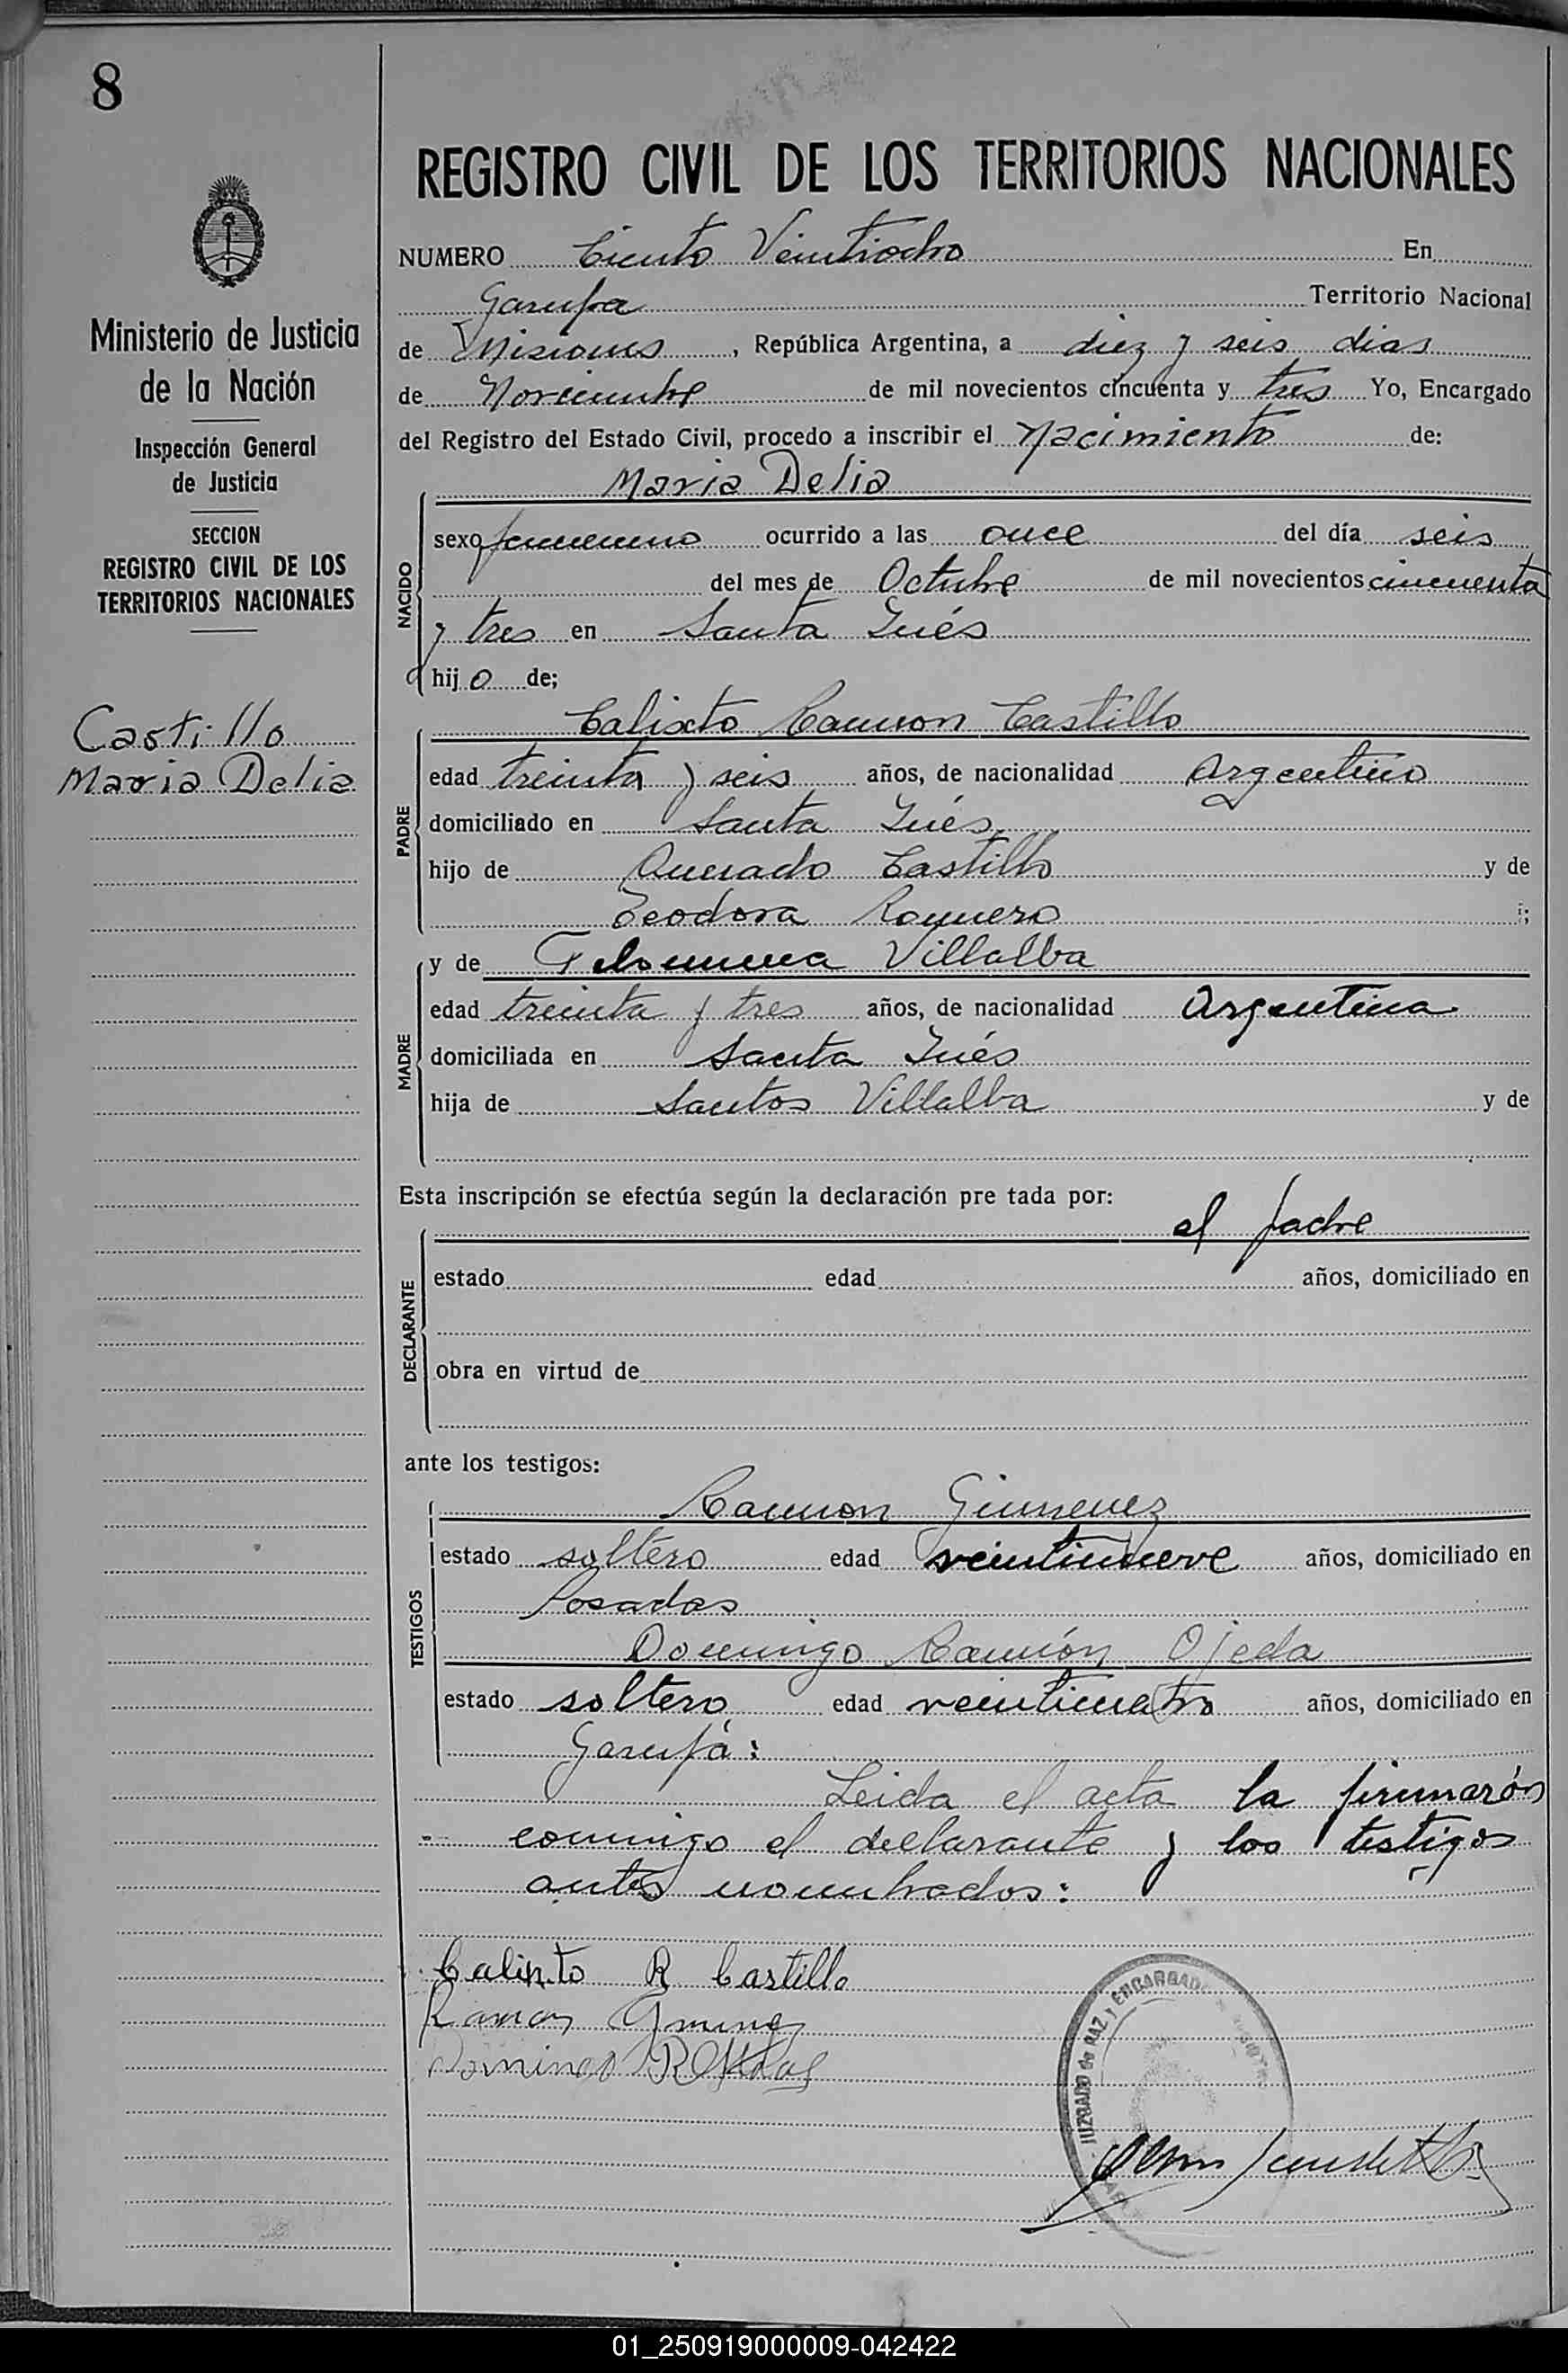 8
REGISTRO CIVIL DE LOS TERRITORIOS NACIONALES
NUMERO Ciento Veintiocho En
Garupa Territorio Nacional
de Misiones, República Argentina, a diez y seis dias
de Noviembre de mil novecientos cincuenta y tres Yo, Encargado
del Registro del Estado Civil, procedo a inscribir el Nacimiento de:
Maria Delia
NACIDO
sexo femenino ocurrido a las once del día seis
del mes de Octubre de mil novecientos cincuenta
y tres en Santa Inés
hijo de;
Calixto Ramon Castillo
PADRE
edad treinta y seis años, de nacionalidad Argentino
domiciliado en Santa Inés
hijo de Castillo y de
Teodora Romero ;
MADRE
y de Filomena Villalba
edad treinta y tres años, de nacionalidad Argentina
domiciliada en Santa Inés
hija de Santos Villalba y de
Esta inscripción se efectúa según la declaración pre tada por:
el padre
DECLARANTE
estado edad años, domiciliado en
obra en virtud de
ante los testigos:
TESTIGOS
Ramon Gimenez
estado soltero edad veintinueve años, domiciliado en
Posadas
Domingo Ramón Ojeda
estado soltero edad veinticuatro años, domiciliado en
Garupá:
Leida el acta la firmarón
conmigo el declarante y los testigos
antes nombrados:
Calixto R Castillo
Ramon
Domingo R
JUZGADO de PAZ y ENCARGADO
Ministerio de Justicia
de la Nación
Inspección General
de Justicia
SECCION
REGISTRO CIVIL DE LOS
TERRITORIOS NACIONALES
Castillo
Maria Delia
01_250919000009-042422